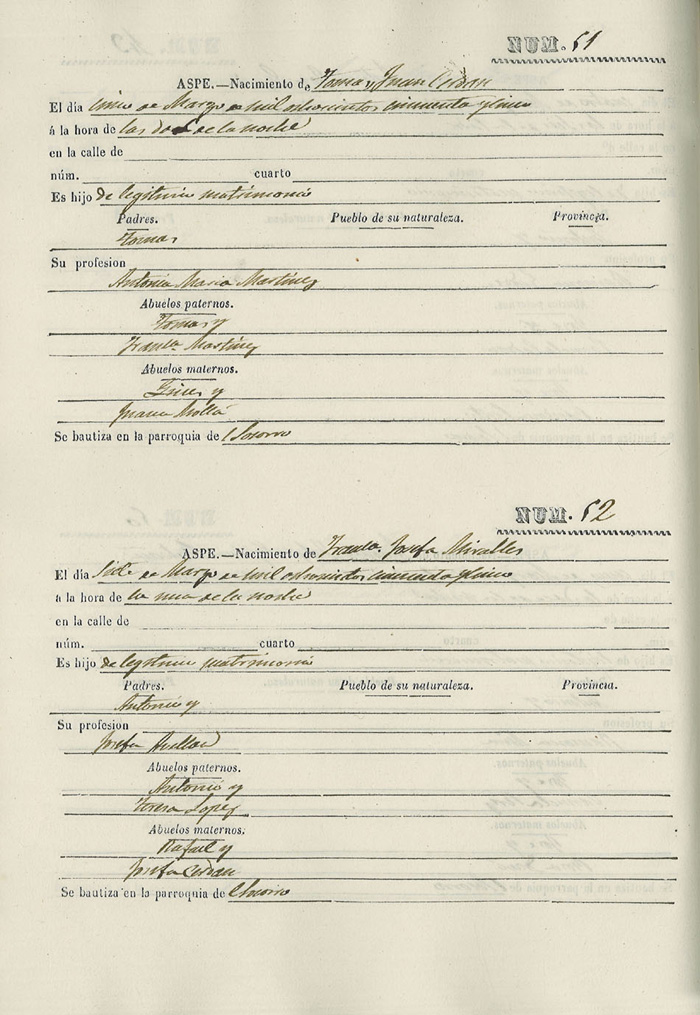 NUM. 51
ASPE.—Nacimiento de Tomas Juan Cerdan
El día cinco de Marzo de mil ochocientos cincuenta y cinco
á la hora de las dos de la noche
en la calle de
núm. cuarto
Es hijo de legitimo matrimonio
Padres. Pueblo de su naturaleza. Provincia.
Tomas
Su profesion
Antonia Maria Martinez
Abuelos paternos.
Tomas y
Franca. Martinez
Abuelos maternos.
Gines y
Juana Mollá
Se bautiza en la parroquia de el Socorro
NUM. 52
ASPE.—Nacimiento de Franca. Josefa Miralles
El día Siete de Marzo de mil ochocientos cincuenta y cinco
á la hora de la una de la noche
en la calle de
núm. cuarto
Es hijo de legitimo matrimonio
Padres. Pueblo de su naturaleza. Provincia.
Antonio y
Su profesion
Josefa
Abuelos paternos.
Antonio y
Teresa Lopez
Abuelos maternos.
Rafael y
Josefa Cerdan
Se bautiza en la parroquia de el Socorro